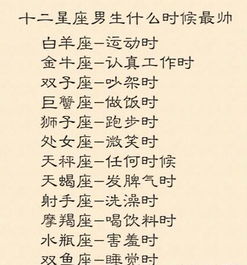 十二星座男生什么时候最帅
白羊座–运动时
金牛座–认真工作时
双子座–吵架时
巨蟹座–做饭时
狮子座–跑步时
处女座–微笑时
天秤座–任何时候
天蝎座–发脾气时
射手座–洗澡时
摩羯座–喝饮料时
水瓶座–害羞时
双鱼座–睡觉时